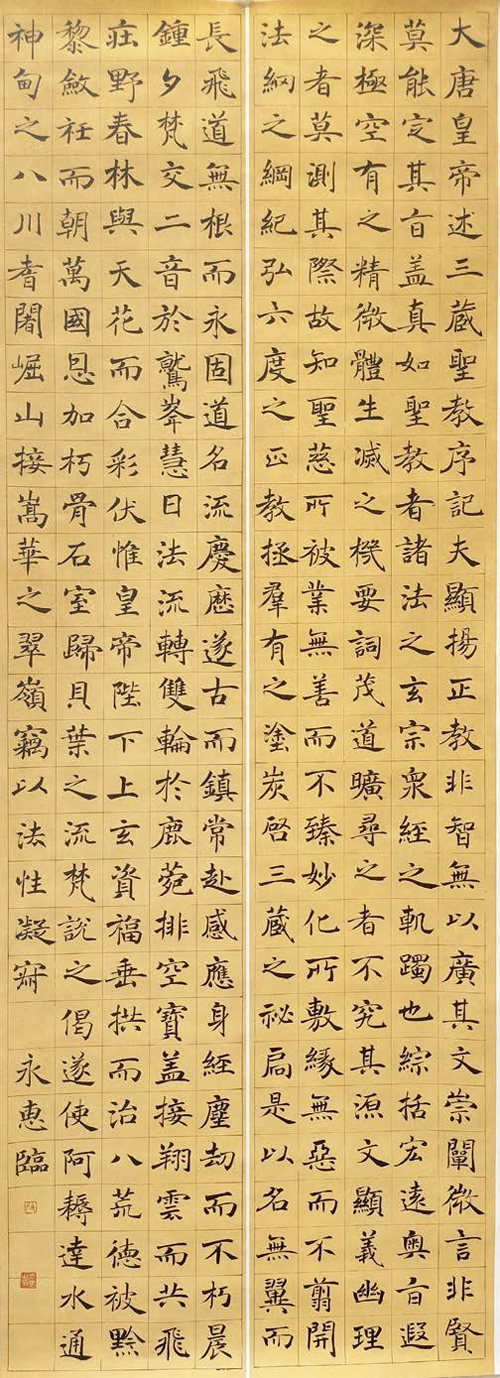 大唐皇帝述三蔵聖教序記夫顯揚正教非智無以廣其文崇闡微言非賢
莫能定其旨盖真如聖教者諸法之玄宗衆經之軌躅也綜括宏遠奥旨遐
深極空有之精微體生滅之機要詞茂道曠尋之者不究其源文顯義幽理
之者莫測其際故知聖慈所被業無善而不臻妙化所敷緣無惡而不翦開
法網之綱紀弘六度之正教拯羣有之塗炭啓三蔵之祕扃是以名無翼而
長飛道無根而永固道名流慶歷遂古而鎮常赴感應身經塵劫而不朽晨
鍾夕梵交二音於鷲峯慧日法流轉雙輪於鹿菀排空寶盖接翔雲而共飛
莊野春林與天花而合彩伏惟皇帝陛下上玄資福垂拱而治八荒德被黔
黎斂衽而朝萬國恩加朽骨石室歸貝葉之流梵說之偈遂使阿耨達水通
神甸之八川耆闍崛山接嵩華之翠嶺竊以法性凝寂 永惠臨